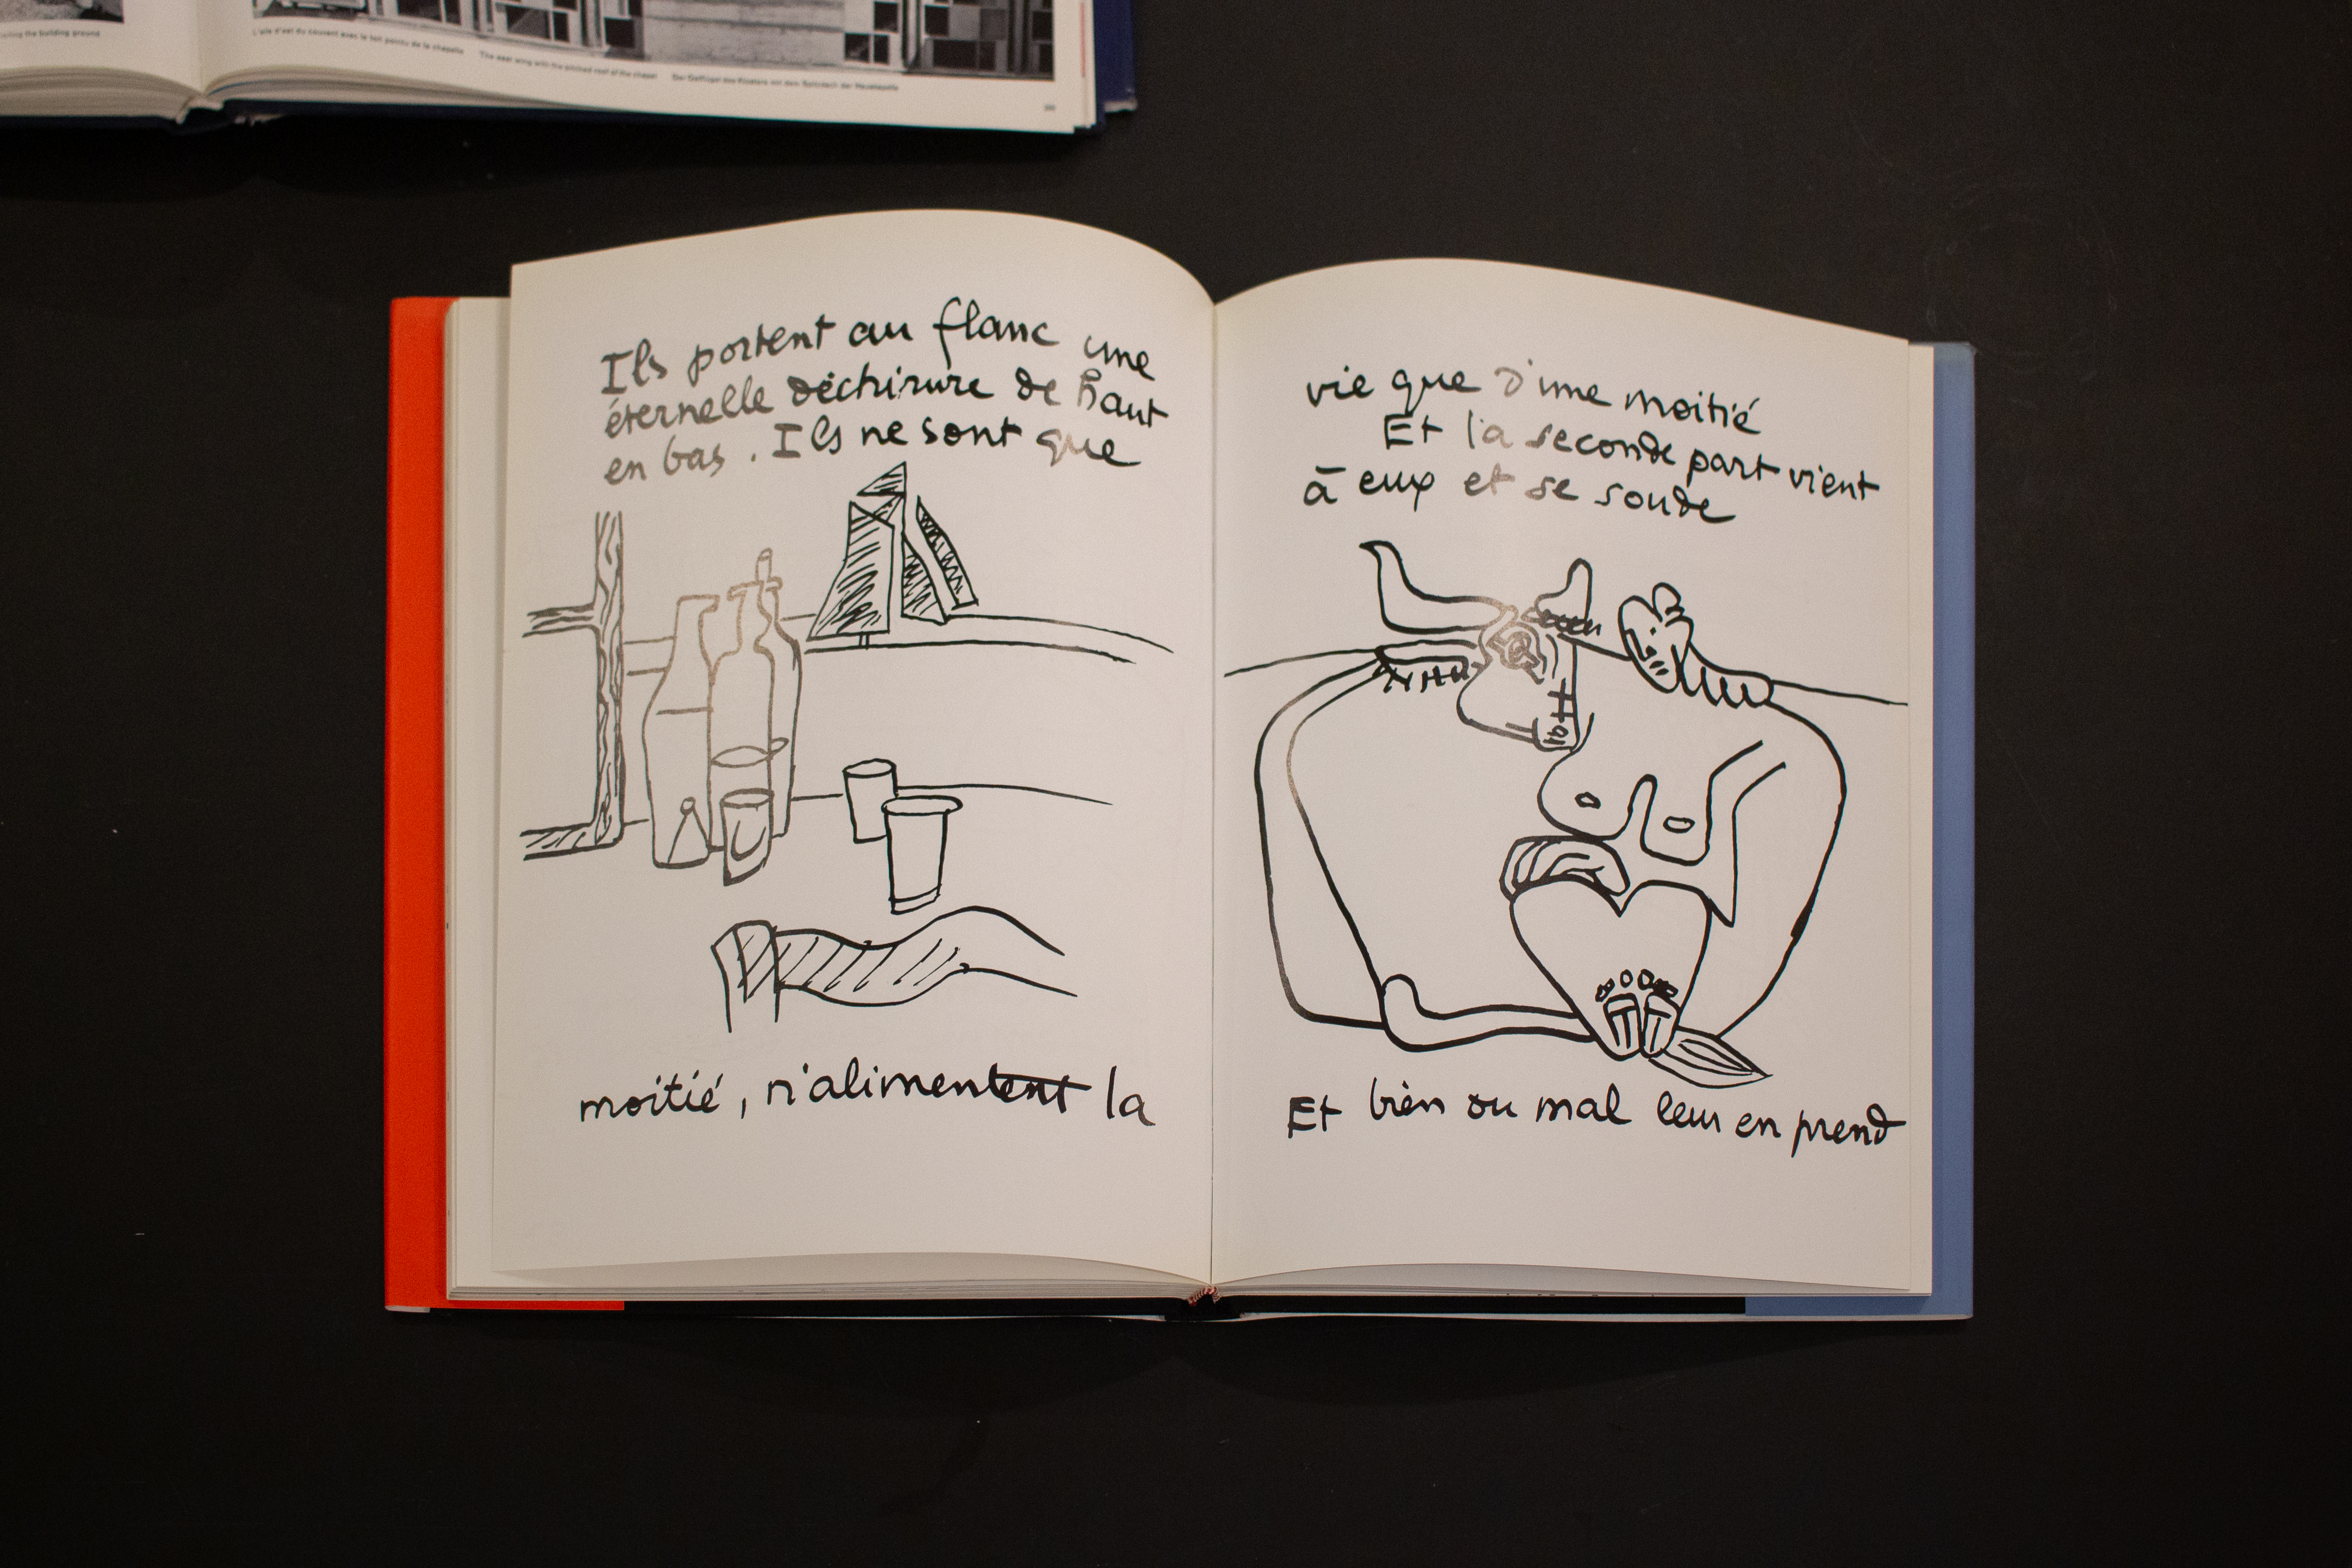 iting the building ground
L'aile d'est du couvent avec le toit pointu de la chapelle The near wing with the pitched roof of the chapel Der Ostflügel des Klosters mit dem Satteldach der Hauskapelle
Ils portent au flanc une
éternelle déchirure de haut
en bas. Ils ne sont que
moitié, n'alimentent la
vie que d'une moitié
Et la seconde part vient
à eux et se soude
Et bien ou mal leur en prend